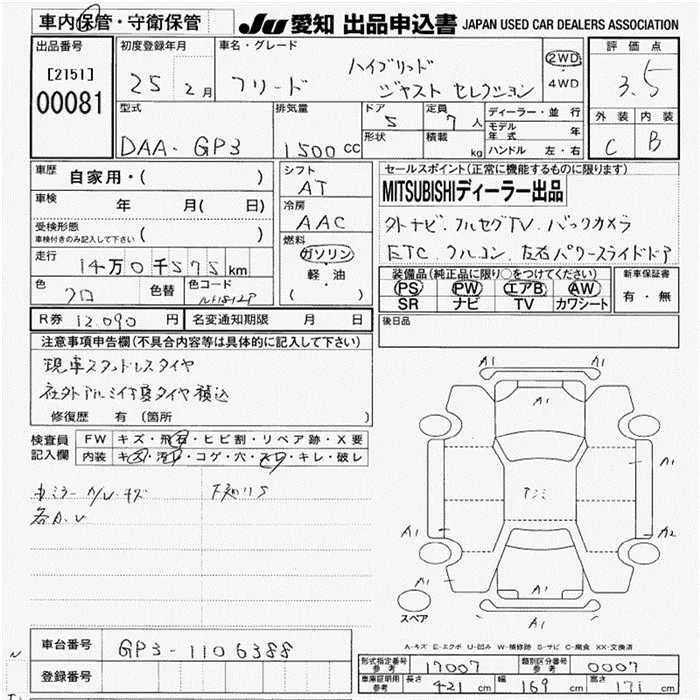 車内保管・守衛保管
JU 愛知 出品申込書 JAPAN USED CAR DEALERS ASSOCIATION
出品番号 初度登録年月 車名・グレード 評価点
[2151]
00081
25 2月 フリード ハイブリッド
ジャスト セレクション
2WD
・
4WD
3.5
型式 排気量 ドア 定員 ディーラー・並行 外装 内装
DAA-GP3 1500cc 5 7人 モデル年式 年 C B
形状 積載 kg ハンドル 左・右
車歴 自家用・( )
シフト AT
セールスポイント(正常に機能するものに限ります)
MITSUBISHIディーラー出品
車検 年 月( 日)
冷房 AAC
外ナビ.フルセグTV.バックカメラ
受検形態
車検付きのみ記入して下さい ( )
燃料 ガソリン
軽・油
( )
ETC.フルコン.左右パワースライドドア
走行 14万0千575km
色 クロ 色替 色コード
装備品(純正品に限り○をつけてください) 新車保証書
PS PW エアB AW 有・無
SR ナビ TV カワシート
R券 12,090円 名変通知期限 月 日
後日品
注意事項申告欄(不具合内容等は具体的に記入して下さい)
現車スタッドレスタイヤ
社外アルミ付夏タイヤ積込
修復歴 有(箇所 )
検査員 FW キズ・飛石・ヒビ割・リペア跡・X要
記入欄 内装 キズ・汚れ・コゲ・穴・スレ・キレ・破レ
各A.U
A1 A1
A1 A1
A1 A2
A1 A1
A1
スペア
A-キズ E-エクボ U-凹み W-補修跡 S-サビ C-腐食 XX-交換済
車台番号 GP3-1106388
登録番号
形式指定番号 参考 17007 類別区分番号 参考 0007
車庫証明用 参考 長さ 421cm 幅 169cm 高さ 171cm